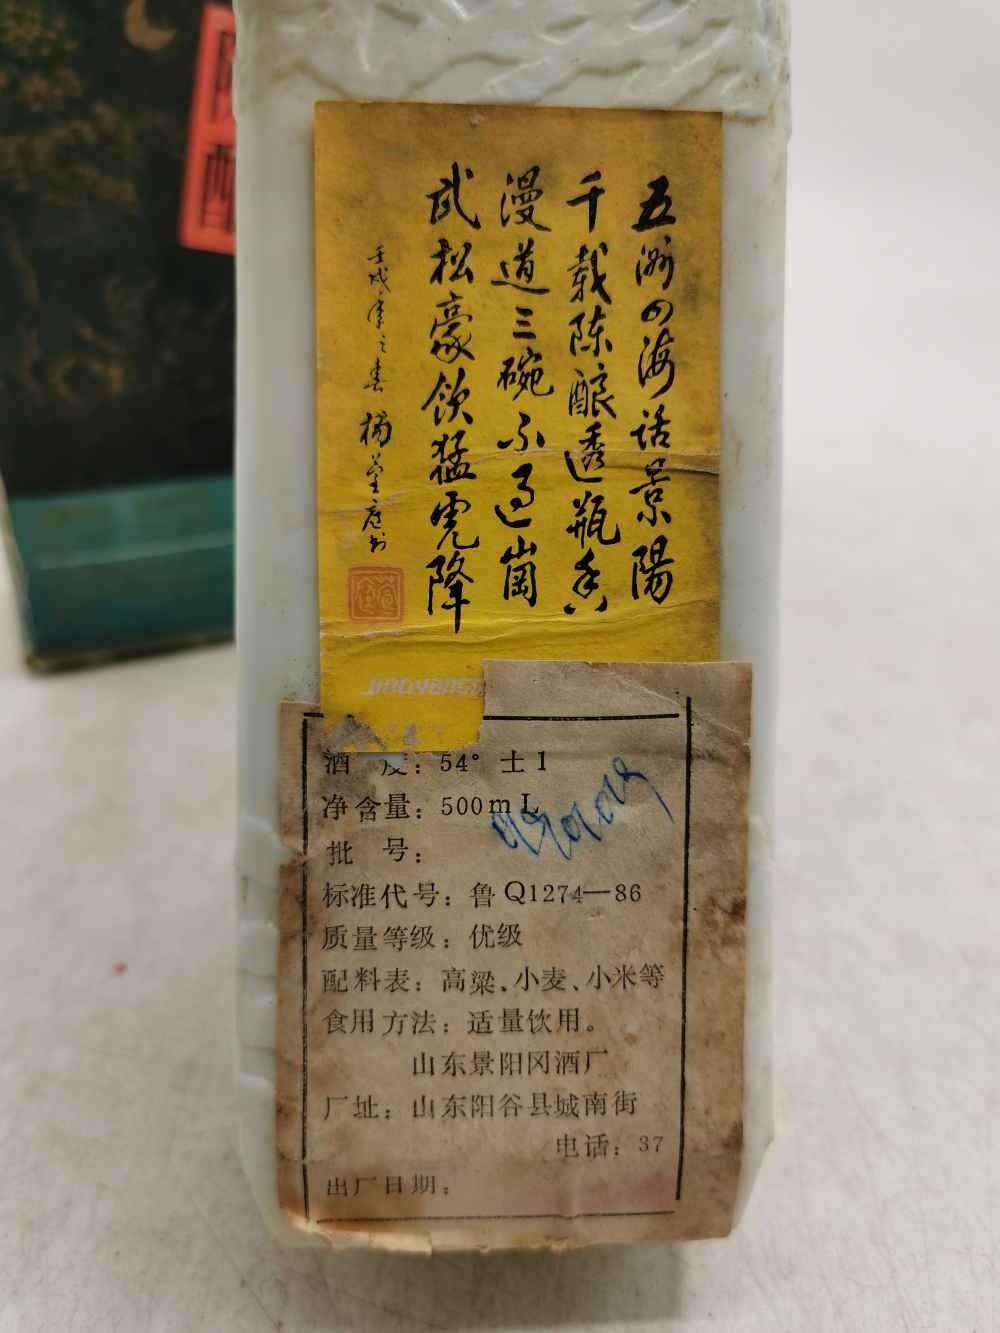 陈酿
五洲四海话景陽
千载陈酿透瓶香
漫道三碗不过崗
武松豪饮猛虎降
壬戌年之春 杨萱庭书
JINGYANG
酒 度：54° 士1
净含量：500mL
批 号：
标准代号：鲁Q1274—86
质量等级：优级
配料表：高粱、小麦、小米等
食用方法：适量饮用。
山东景阳冈酒厂
厂址：山东阳谷县城南街
电话：37
出厂日期：